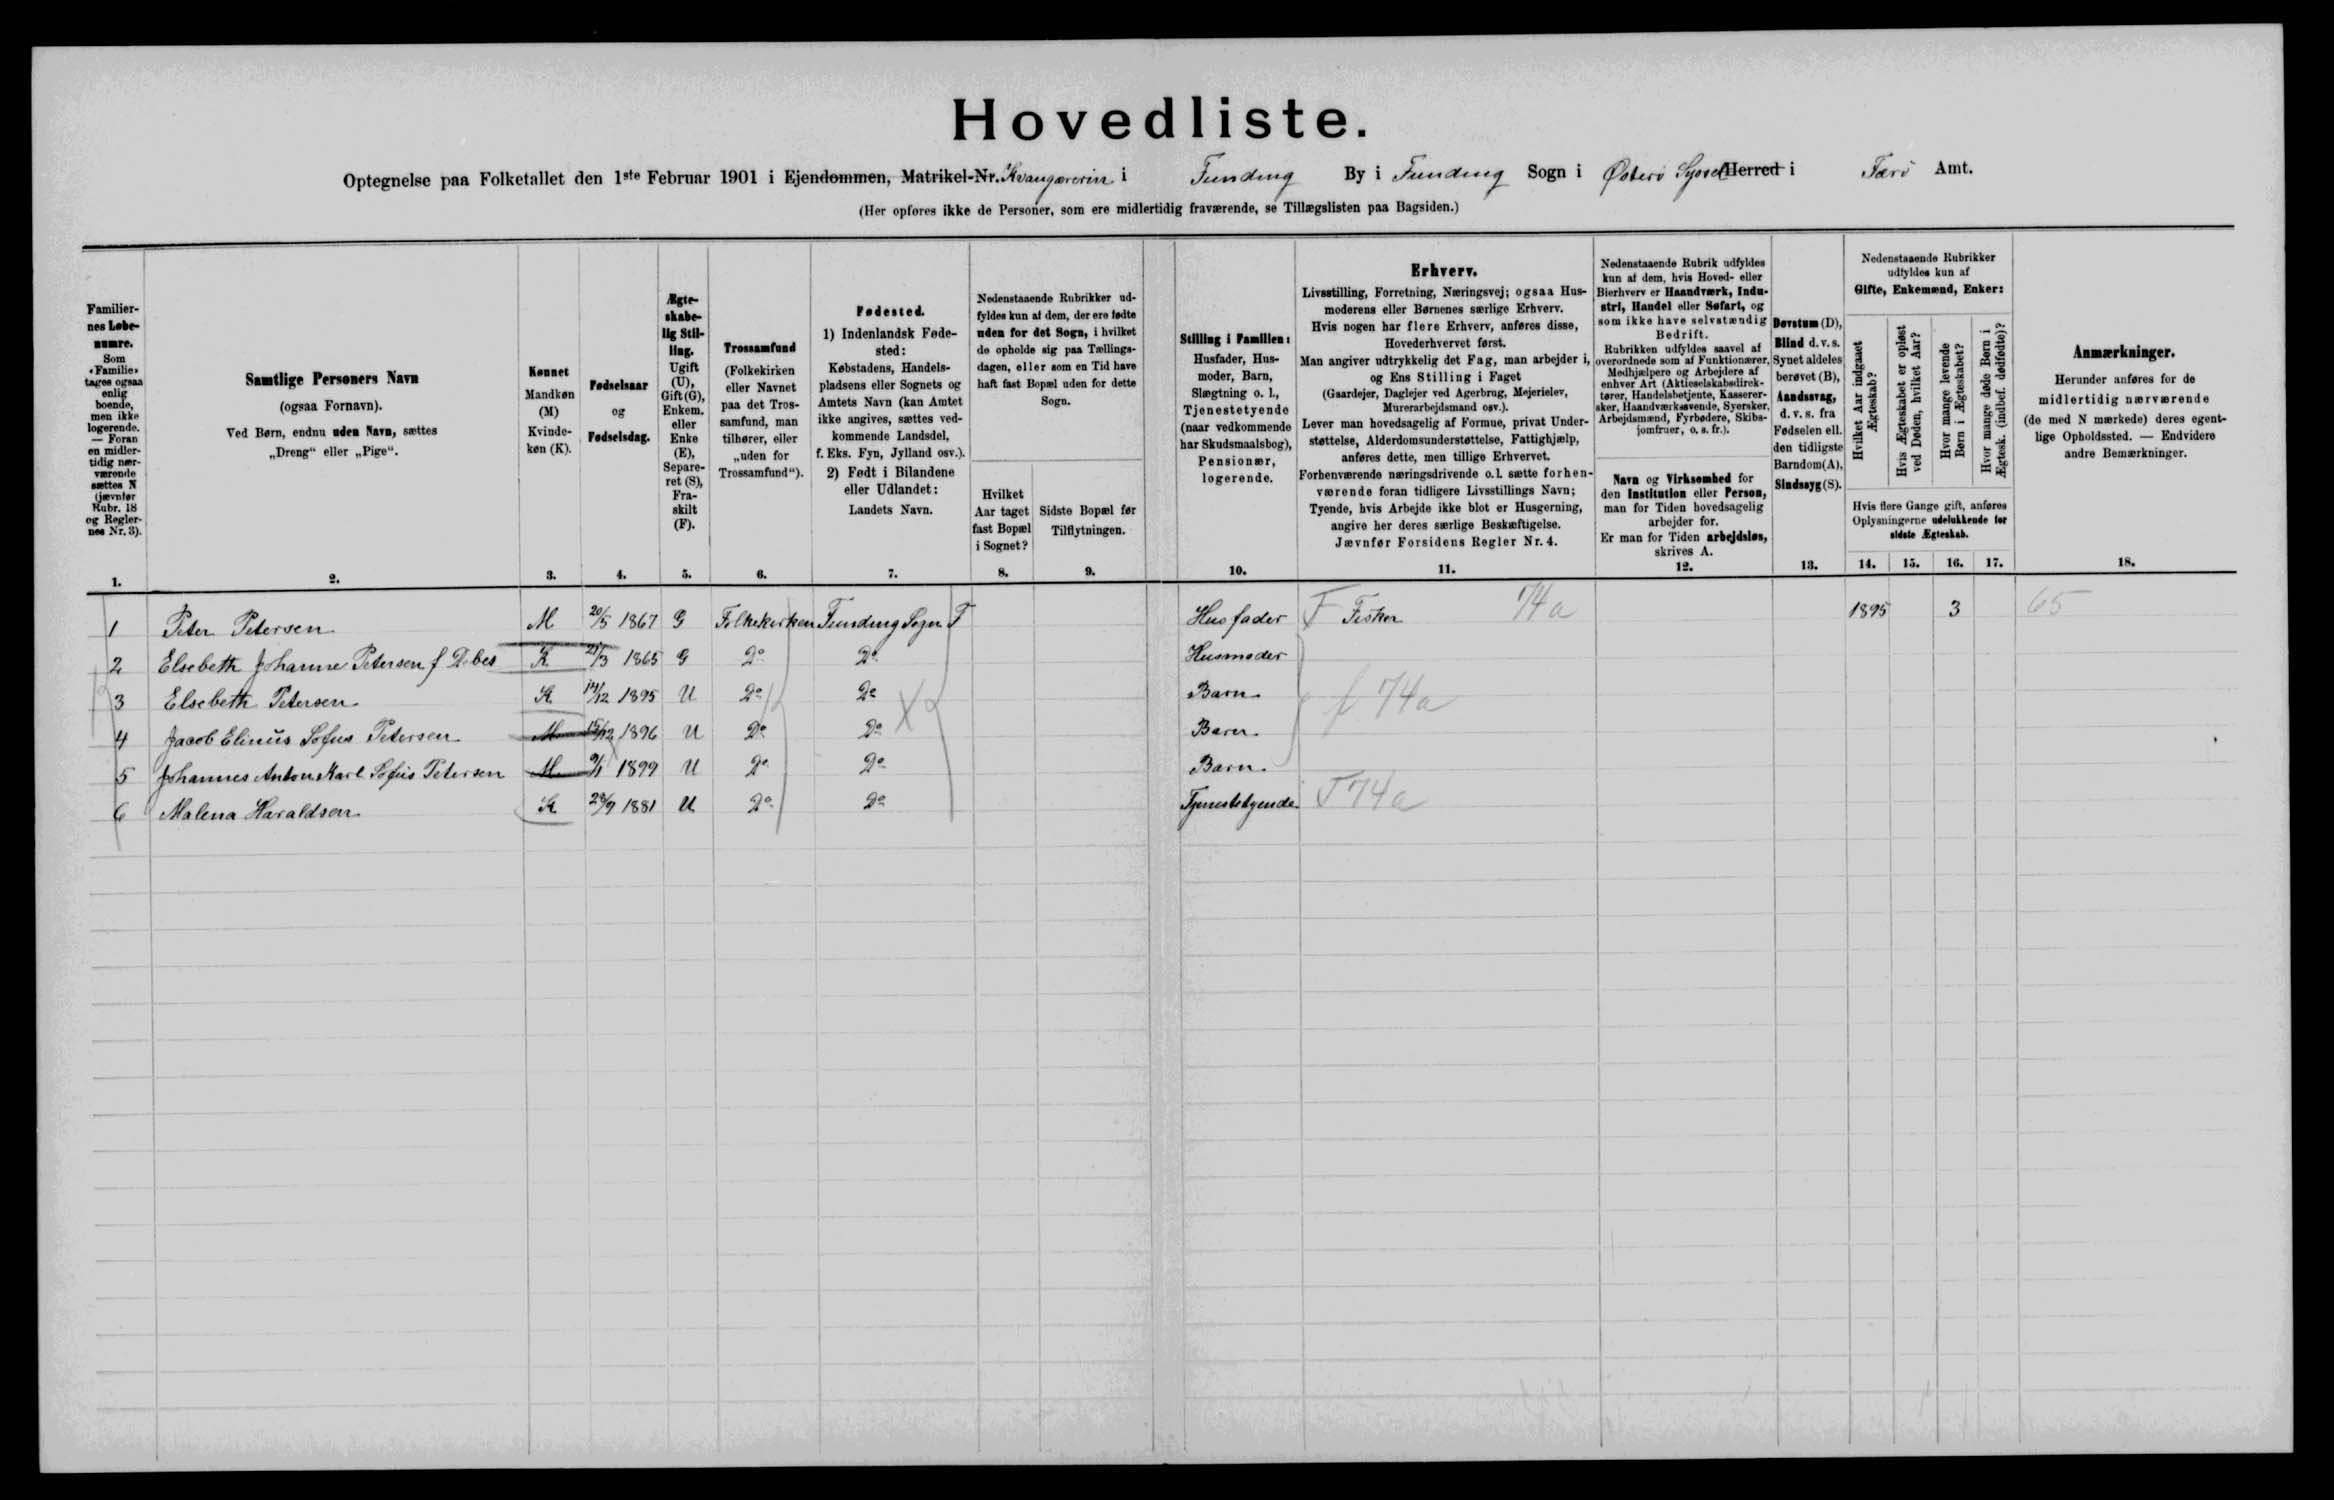 Hovedliste.
Optegnelse paa Folketallet den 1ste Februar 1901 i Ejendommen, Matrikel-Nr. Kvangærerin i Funding By i Funding Sogn i Østerø Syssel Herred i Færø Amt.
(Her opføres ikke de Personer, som ere midlertidig fraværende, se Tillægslisten paa Bagsiden.)
Familier-
nes Løbe-
numre.
Som
«Familie»
tages ogsaa
enlig
boende,
men ikke
logerende.
— Foran
en midler-
tidig nær-
værende
sættes N
(jævnfør
Rubr. 18
og Regler-
nes Nr. 3).
1.
Samtlige Personers Navn
(ogsaa Fornavn).
Ved Børn, endnu uden Navn, sættes
„Dreng“ eller „Pige“.
2.
Kønnet
Mandkøn
(M)
Kvinde-
køn (K).
3.
Fødselsaar
og
Fødselsdag.
4.
Ægte-
skabe-
lig Stil-
ling.
Ugift
(U),
Gift (G),
Enkem.
eller
Enke
(E),
Separe-
ret (S),
Fra-
skilt
(F).
5.
Trossamfund
(Folkekirken
eller Navnet
paa det Tros-
samfund, man
tilhører, eller
„uden for
Trossamfund“).
6.
Fødested.
1) Indenlandsk Føde-
sted:
Købstadens, Handels-
pladsens eller Sognets og
Amtets Navn (kan Amtet
ikke angives, sættes ved-
kommende Landsdel,
f. Eks. Fyn, Jylland osv.).
2) Født i Bilandene
eller Udlandet:
Landets Navn.
7.
Nedenstaaende Rubrikker ud-
fyldes kun af dem, der ere fødte
uden for det Sogn, i hvilket
de opholde sig paa Tællings-
dagen, eller som en Tid have
haft fast Bopæl uden for dette
Sogn.
Hvilket
Aar taget
fast Bopæl
i Sognet?
8.
Sidste Bopæl før
Tilflytningen.
9.
Stilling i Familien:
Husfader, Hus-
moder, Barn,
Slægtning o. l.,
Tjenestetyende
(naar vedkommende
har Skudsmaalsbog),
Pensionær,
logerende.
10.
Erhverv.
Livsstilling, Forretning, Næringsvej; ogsaa Hus-
moderens eller Børnenes særlige Erhverv.
Hvis nogen har flere Erhverv, anføres disse,
Hovederhvervet først.
Man angiver udtrykkelig det Fag, man arbejder i,
og Ens Stilling i Faget
(Gaardejer, Daglejer ved Agerbrug, Mejerielev,
Murerarbejdsmand osv.).
Lever man hovedsagelig af Formue, privat Under-
støttelse, Alderdomsunderstøttelse, Fattighjælp,
anføres dette, men tillige Erhvervet.
Forhenværende næringsdrivende o.l. sætte forhen-
værende foran tidligere Livsstillings Navn;
Tyende, hvis Arbejde ikke blot er Husgerning,
angive her deres særlige Beskæftigelse.
Jævnfør Forsidens Regler Nr. 4.
11.
Nedenstaaende Rubrik udfyldes
kun af dem, hvis Hoved- eller
Bierhverv er Haandværk, Indu-
stri, Handel eller Søfart, og
som ikke have selvstændig
Bedrift.
Rubrikken udfyldes saavel af
overordnede som af Funktionærer,
Medhjælpere og Arbejdere af
enhver Art (Aktieselskabsdirek-
tører, Handelsbetjente, Kasserer-
sker, Haandværkssvende, Syersker,
Arbejdsmænd, Fyrbødere, Skibs-
jomfruer, o. s. fr.).
Navn og Virksomhed for
den Institution eller Person,
man for Tiden hovedsagelig
arbejder for.
Er man for Tiden arbejdsløs,
skrives A.
12.
Døvstum (D),
Blind d. v. s.
Synet aldeles
berøvet (B),
Aandssvag,
d. v. s. fra
Fødselen ell.
den tidligste
Barndom (A),
Sindssyg (S).
13.
Nedenstaaende Rubrikker
udfyldes kun af
Gifte, Enkemænd, Enker:
Hvilket Aar indgaaet
Ægteskab?
Hvis Ægteskabet er opløst
ved Døden, hvilket Aar?
Hvor mange levende
Børn i Ægteskabet?
Hvor mange døde Børn i
Ægtesk. (indbef. dødfødte)?
Hvis flere Gange gift, anføres
Oplysningerne udelukkende for
sidste Ægteskab.
14. 15. 16. 17.
Anmærkninger.
Herunder anføres for de
midlertidig nærværende
(de med N mærkede) deres egent-
lige Opholdssted. — Endvidere
andre Bemærkninger.
18.
1 Peter Petersen M 20/5 1867 G Folkekirken Funding Sogn F Husfader F Fisker 74a 1895 3 65
2 Elsebeth Johanne Petersen f Debes K 21/3 1865 G Do Do Husmoder
3 Elsebeth Petersen K 14/12 1895 U Do Do Barn f 74a
4 Jacob Elinus Sofus Petersen M 15/12 1896 U Do Do Barn
5 Johannes Anton Karl Sofus Petersen M 9/1 1899 U Do Do Barn
6 Malena Haraldsen K 28/9 1881 U Do Do Tjenestetyende T 74a